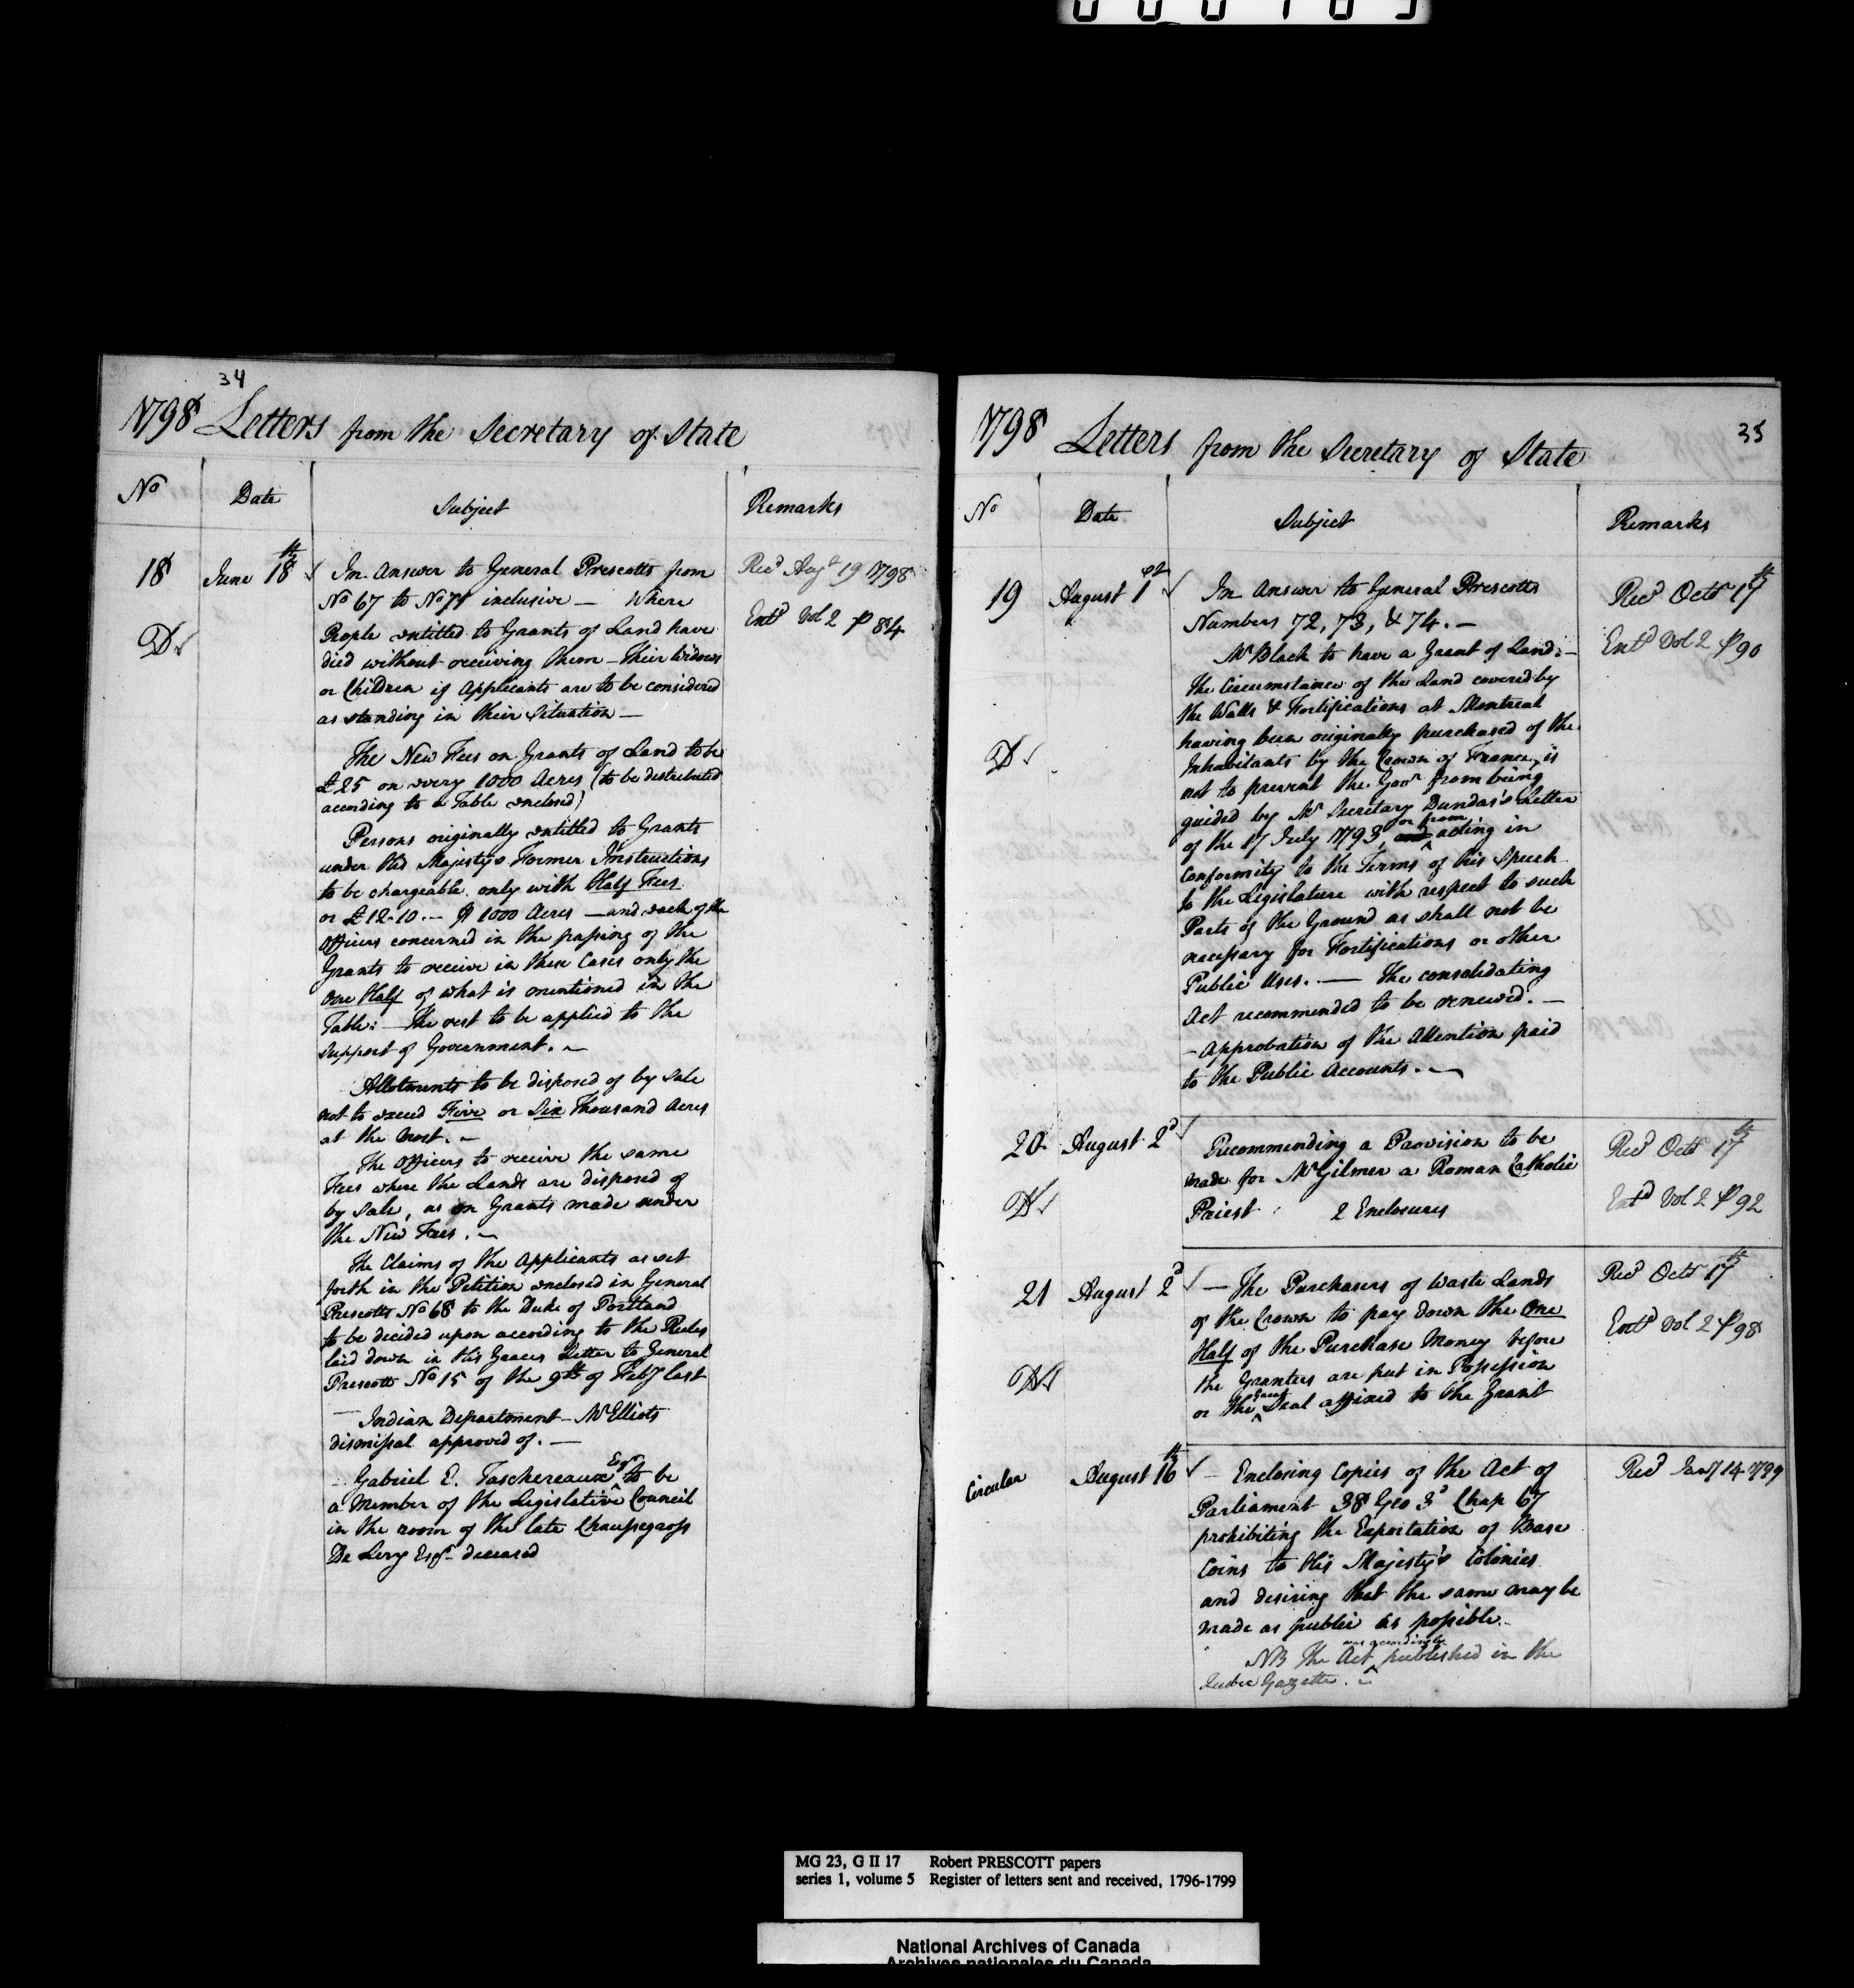 34
1798 Letters from the Secretary of State
No Date Subject Remarks
18 June 18th In answer to General Prescotts from
No 67 to No 71 inclusive — Where
People entitled to Grants of Land have
died without receiving them — Their Widows
or Children if Applicants are to be considered
as standing in their Situation —
The New Fees on Grants of Land to be
£25 on every 1000 Acres (to be distributed
according to a Table enclosed)
Persons originally entitled to Grants
under His Majesty's Former Instructions
to be chargeable only with Half Fees
or £12-10.- ⅌ 1000 Acres — and each of the
Officers concerned in the passing of the
Grants to receive in these Cases only the
One Half of what is mentioned in the
Table: — The rest to be applied to the
support of Government. —
Allotments to be disposed of by sale
not to exceed Five or Six Thousand Acres
at the most. —
The Officers to receive the same
Fees where the Lands are disposed of
by Sale, as on Grants made under
the New Fees. —
The Claims of the Applicants as set
forth in the Petition enclosed in General
Prescotts No 68 to the Duke of Portland
to be decided upon according to the Rules
laid down in His Graces Letter to General
Prescott No 15 of the 9th of Feby last
— Indian Department — Mr Elliots
dismissal approved of. —
Gabriel E. Taschereaux Esqr to be
a Member of the Legislative Council
in the room of the late Chaussegross
De Lery Esqr deceased
Recd Augt 19 1798
Entd Vol 2 P 84
D
35
1798 Letters from the Secretary of State
No Date Subject Remarks
19 August 1st In answer to General Prescotts
Numbers 72, 73, & 74. —
Mr Black to have a Grant of Land: —
The Circumstance of the Land covered by
the Walls & Fortifications at Montreal
having been originally purchased of the
Inhabitants by the Crown of France, is
not to prevent the Govr from being
guided by Mr Secretary Dundas's Letter
of the 17 July 1793, and or from acting in
Conformity to the Terms of his Speech
to the Legislature with respect to such
Parts of the Ground as shall not be
necessary for Fortifications or other
Public Uses. — The consolidating
Act recommended to be renewed. —
— Approbation of the Attention paid
to the Public Accounts. —
Recd Octr 17th
Entd Vol 2 P 90
D
20 August 2d Recommending a Provision to be
made for Mr Gilmer a Roman Catholic
Priest 2 Enclosures
Recd Octr 17th
Entd Vol 2 P 92
D
21 August 2d — The Purchasers of Waste Lands
of the Crown to pay down the One
Half of the Purchase Money before
the Grantees are put in Possession
or the Great Seal affixed to the Grant
Recd Octr 17th
Entd Vol 2 P 98
D
Circular August 16th — Enclosing Copies of the Act of
Parliament 38 Geo 3d Chap 67
prohibiting the Exportation of Base
Coins to His Majesty's Colonies
and desiring that the same may be
made as public as possible.
NB The Act was accordingly published in the
Quebec Gazette. —
Recd Jany 14 1799
MG 23, G II 17 Robert PRESCOTT papers
series 1, volume 5 Register of letters sent and received, 1796-1799
National Archives of Canada
Archives nationales du Canada